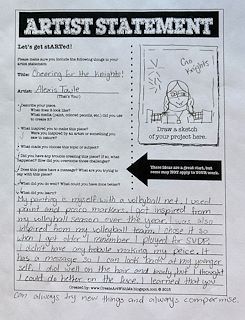 ARTIST STATEMENT
Let's get stARTed!
Please make sure you include the following things in your
artist statement:
Title: Cheering for the Knights!
Artist: Alexis
(That's You!)
Describe your piece.
What does it look like?
What media (paint, colored pencils, etc.) did you use
to create it?
What inspired you to make this piece?
Were you inspired by an artist or something you
saw in
What made you choose this topic or subject?
Did you have any trouble creating this piece? If so, what
happened? How did you overcome those challenges?
Does this piece have a message? What are you trying to
say with this piece?
What did you do well? What could you have done better?
What did you learn?
Go Knights
Draw a sketch
of your project here.
These ideas are a great start, but
some may NOT apply to YOUR work.
My painting is myself with a volleyball net. I used
paint and posca markers. I got inspired from
my volleyball season over the year. I was also
inspired from my volleyball team. I chose it so
when I got older I remember I played for SVDP.
I didn't have any trouble making my peice. It
has a message so I can look back at my younger
self. I did well on the hair and body but I thought
I could do better on the live. I learned that you
can always try new things and always compermise.
Created by www.CreateArtWithMe.blogspot.com © 2013